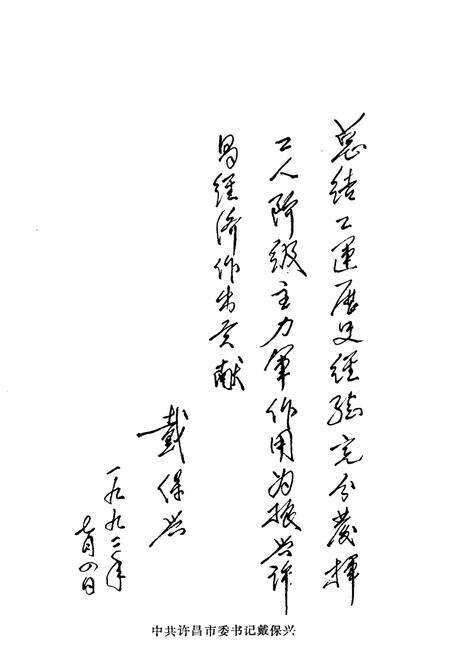 总结工运历史经验充分发挥
工人阶级主力军作用为振兴许
昌经济作出贡献
戴保兴
一九九二年
七月四日
中共许昌市委书记戴保兴